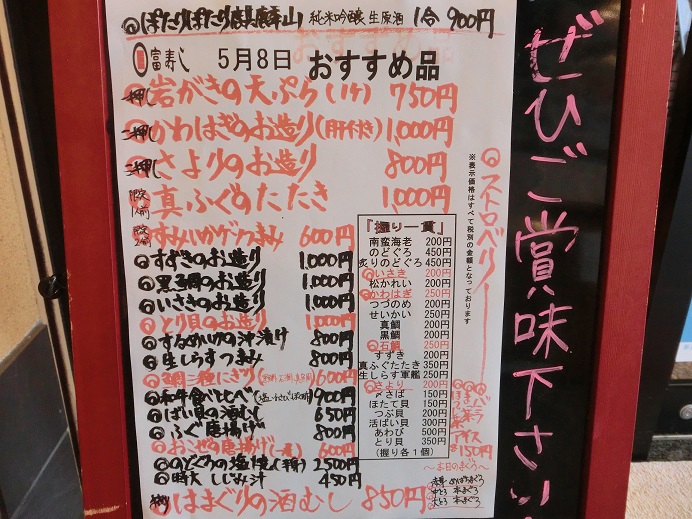 ぽたりぽたり麒麟山 純米吟醸 生原酒 1合 900円
富寿し 5月8日 おすすめ品
一押し 岩がきの天ぷら(1ケ) 750円
二押し かわはぎのお造り(肝付き) 1,000円
三押し さよりのお造り 800円
真ふぐのたたき 1,000円
600円
すずきのお造り 1,000円
黒鯛のお造り 1,000円
いさきのお造り 1,000円
とり貝のお造り 1,000円
するめいかの沖漬け 800円
生しらすつまみ 800円
鯛三種にぎり 600円
和牛食べ比べ 900円
ばい貝の酒むし 650円
ふぐ唐揚げ 800円
おこぜの唐揚げ 600円
のどぐろの塩焼 2500円
時大 しじみ汁 450円
はまぐりの酒むし 850円
「握り一貫」
南蛮海老 200円
のどぐろ 450円
炙りのどぐろ 450円
いさき 250円
松かれい 200円
かわはぎ 250円
つづのめ 200円
せいかい 200円
真鯛 200円
黒鯛 200円
石鯛 250円
すずき 200円
真ふぐたたき 350円
生しらす軍艦 250円
さより 200円
〆さば 150円
ほたて貝 150円
つぶ貝 200円
活ばい貝 300円
あわび 500円
とり貝 350円
(握り各1個)
※表示価格はすべて税別の金額となっております
ストロベリー
アイス
150円
～本日のまぐろ～
ぜひご賞味下さい